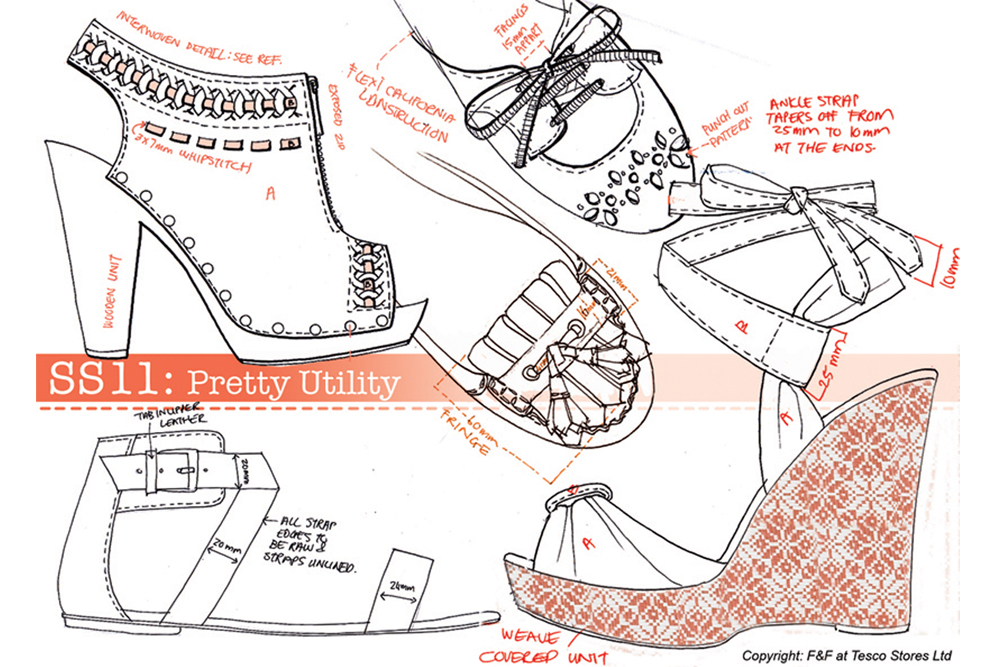 INTERWOVEN DETAIL: SEE REF.
EXPOSED ZIP
8X7mm WHIPSTITCH
A
WOODEN UNIT
FLEXI CALIFORNIA
CONSTRUCTION
FACINGS
15mm
APPART
PUNCH OUT
PATTERN
ANKLE STRAP
TAPERS OFF FROM
25mm TO 10mm
AT THE ENDS.
10mm
B
25mm
A
60mm
FRINGE
SS11: Pretty Utility
TAB IN UPPER
LEATHER
20mm
20mm
ALL STRAP
EDGES TO
BE RAW &
STRAPS UNLINED.
24mm
B
A
WEAVE
COVERED UNIT
Copyright: F&F at Tesco Stores Ltd